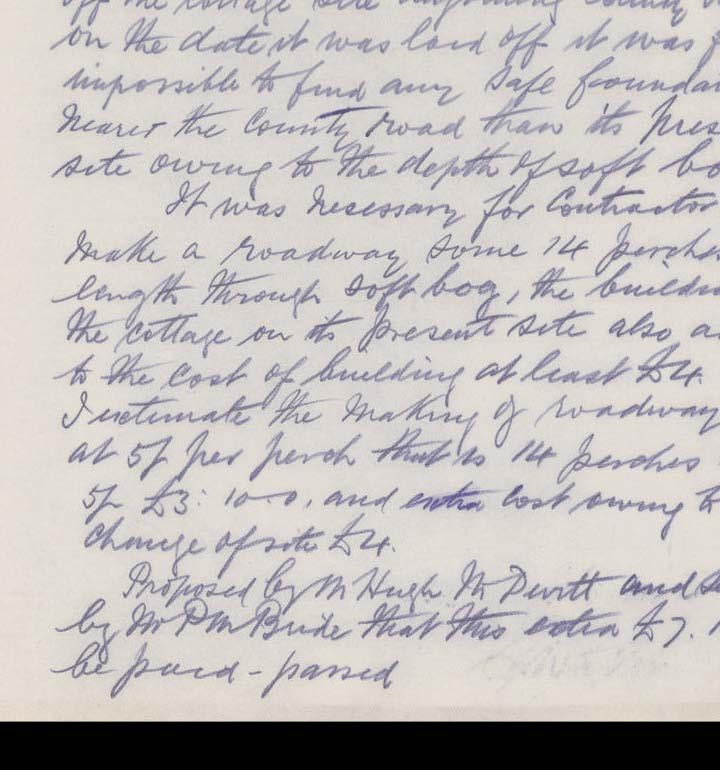 off the cottage site adjoining County
on the date it was laid off it was
impossible to find any safe foundat
nearer the County road than its pres
site owing to the depth of soft bo
It was necessary for Contractor
make a roadway some 14 perches
length through soft bog, the buildi
the cottage on its present site also a
to the cost of building at least £4.
I estimate the making of roadway
at 5/ per perch that is 14 perches
5/ £3: 10-0. and extra cost owing to
change of site £4.
Proposed by Mr Hugh McDevitt and S
by Mr P McBride that this extra £7.
be paid - passed